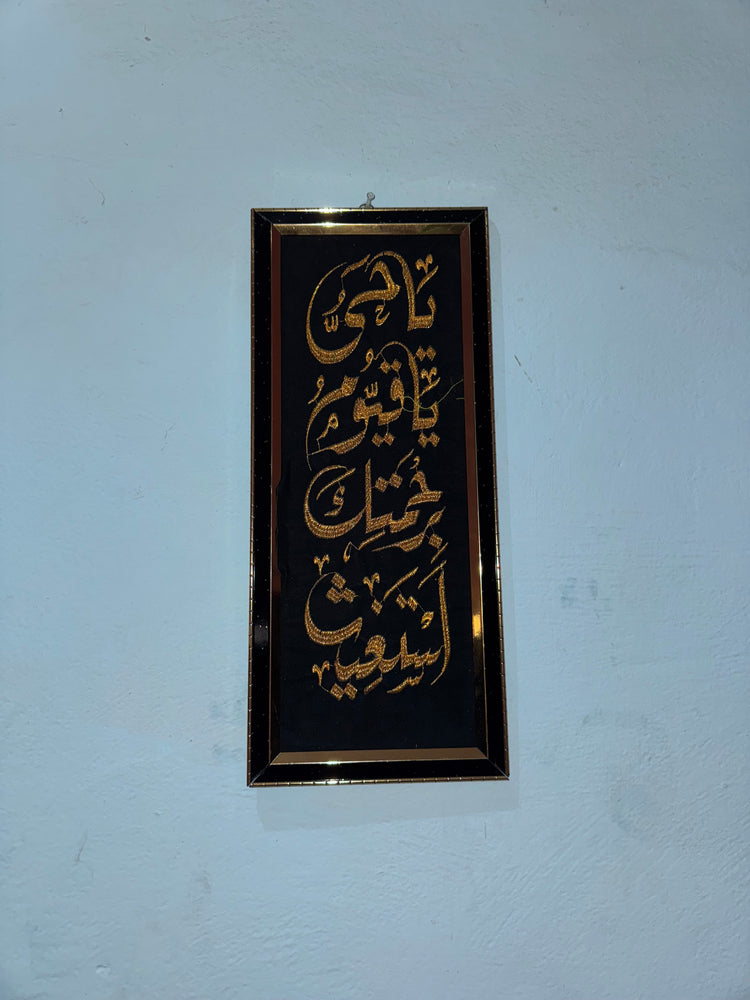 يَا حَيُّ
يَا قَيُّومُ
بِرَحْمَتِكَ
أَسْتَغِيثُ